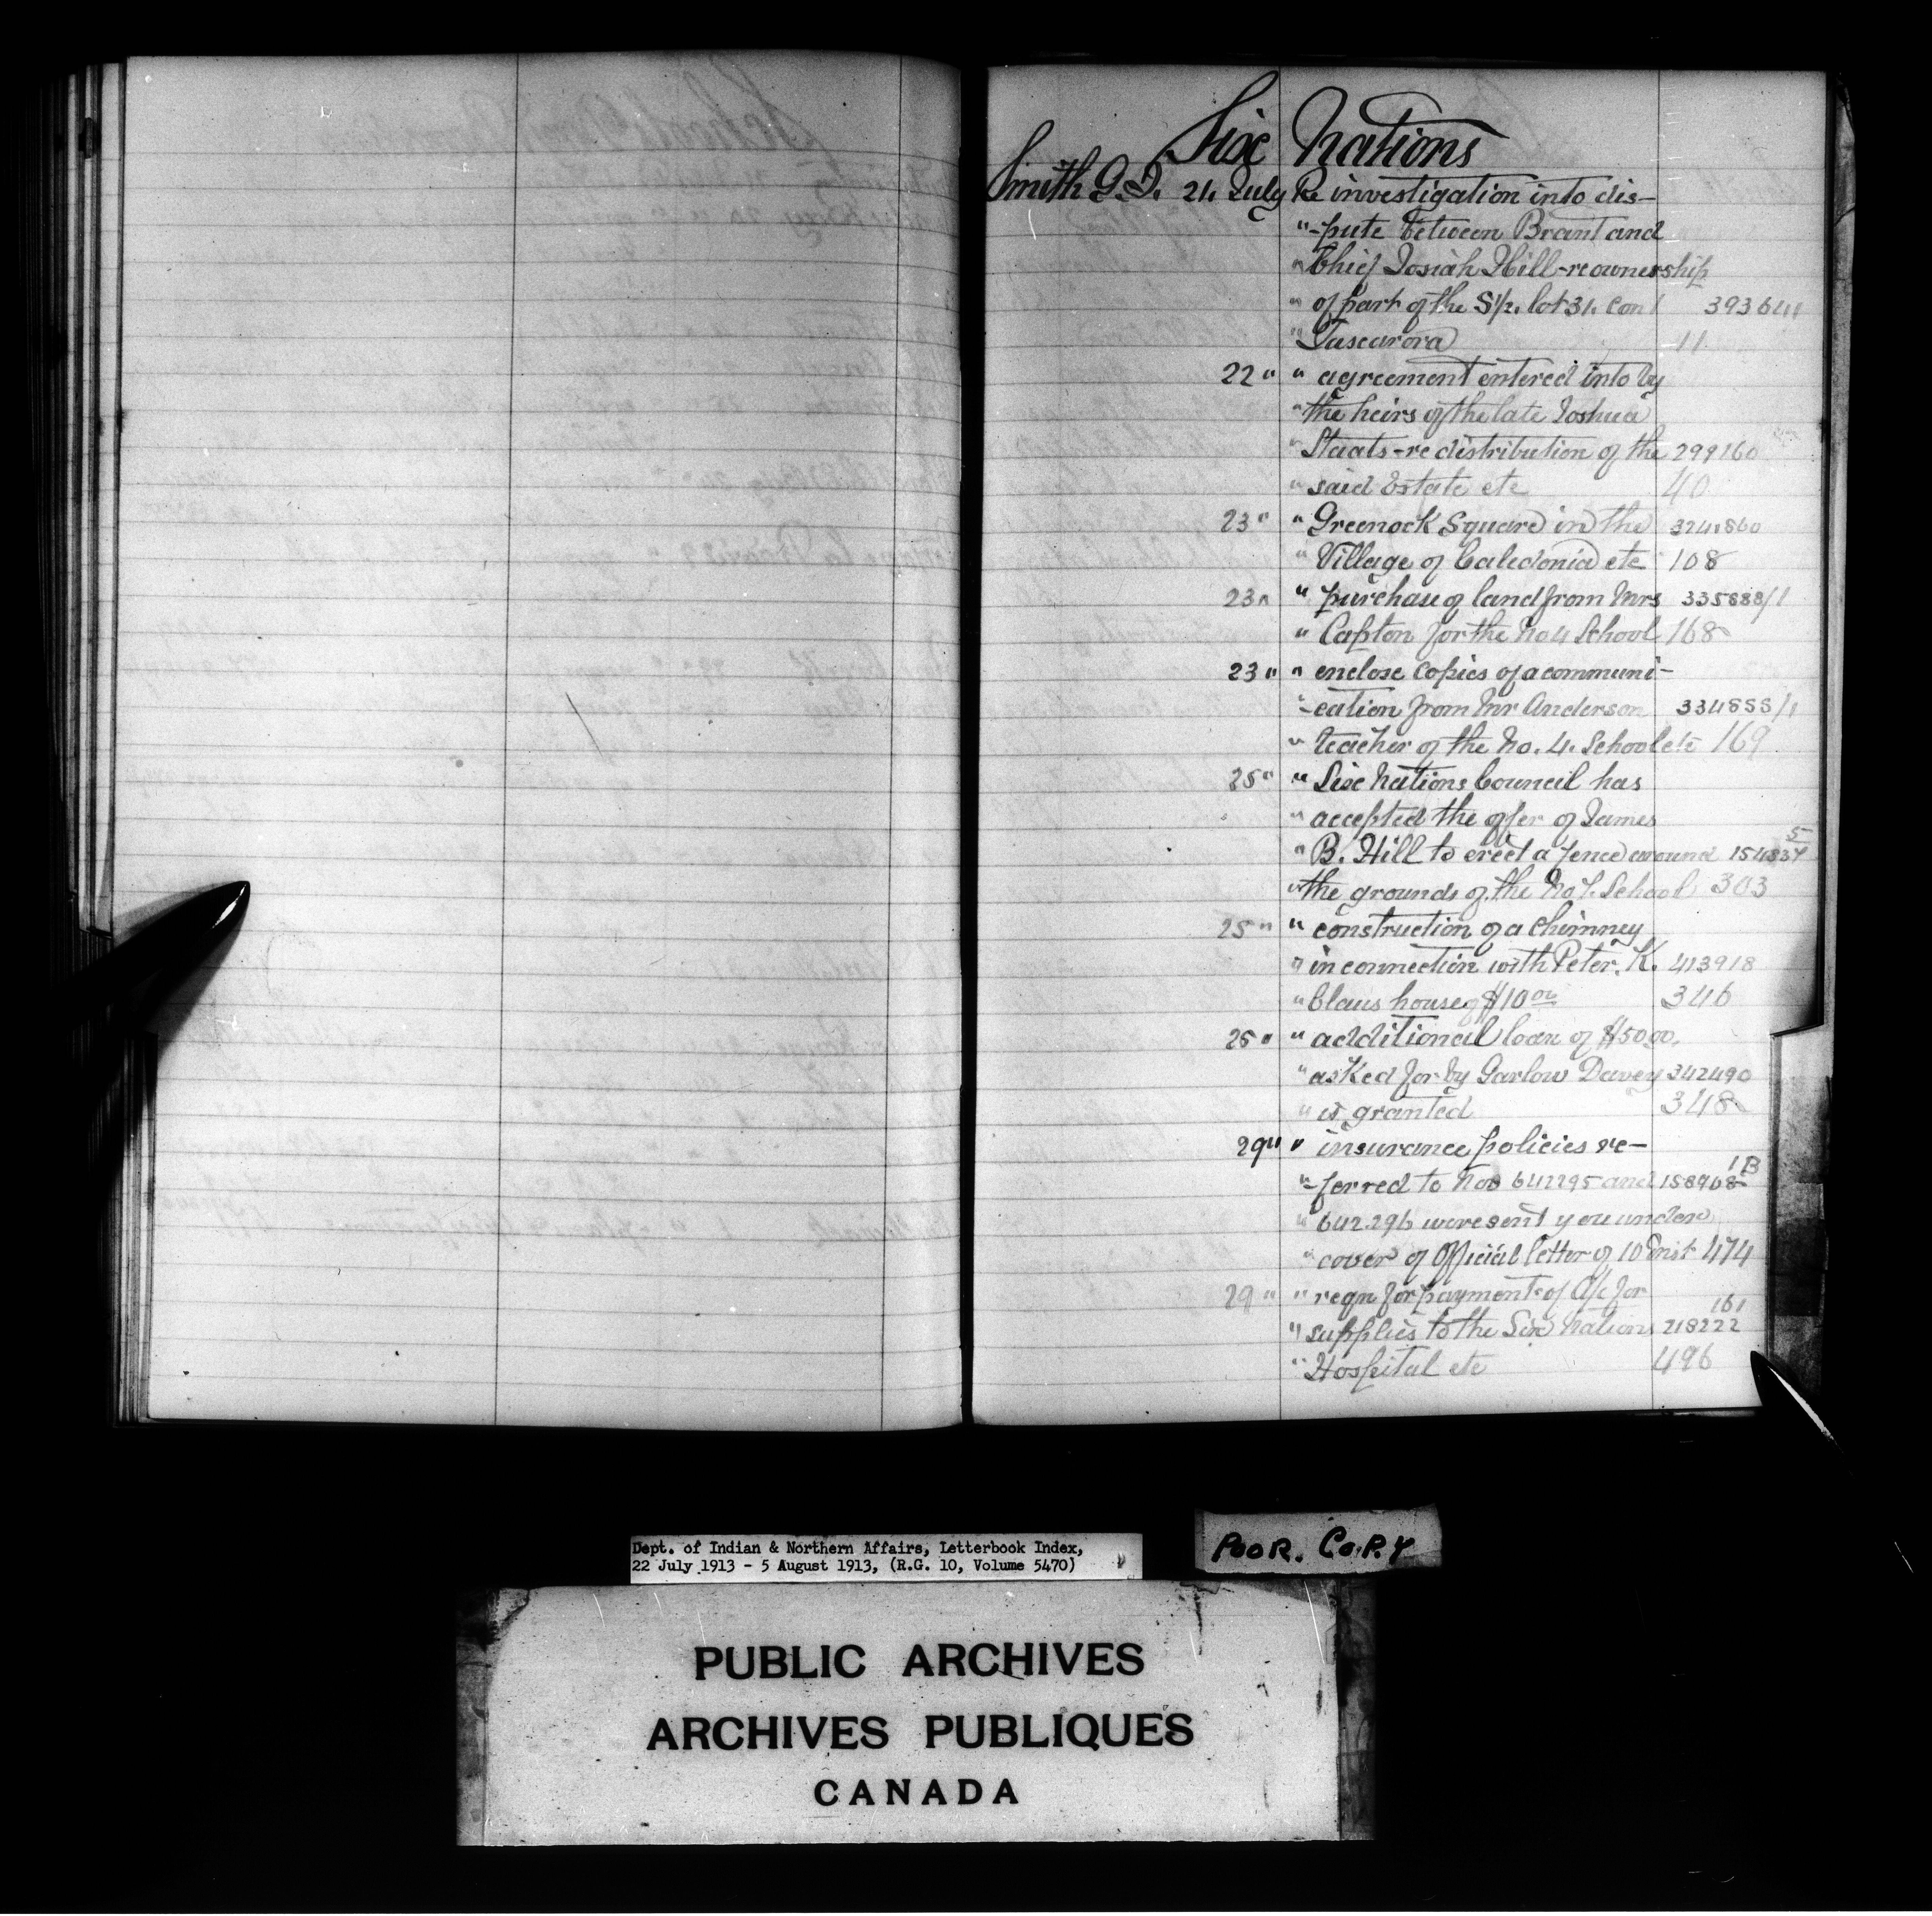 Six Nations
Smith G. D. 21. July Re investigation into dis-
" -pute between Brant and
" Chief Josiah Hill - re ownership
" of part of the S½. lot 31. Con 1 393641
" Tuscarora 11
22 " " agreement entered into by
" the heirs of the late Joshua
" Staats - re distribution of the 299160
" said Estate etc 40
23 " " Greenock Square in the 324860
" Village of Caledonia etc 108
23 " " purchase of land from Mrs 335888/1
" Capton for the No 4 School 168
23 " " enclose copies of a communi-
" -cation from Mr Anderson 334888/1
" teacher of the No. 4. School etc 169
25 " " Six Nations Council has
" accepted the offer of James
" B. Hill to erect a fence around 154837 5
" the grounds of the No 7. School 303
25 " " construction of a chimney
" in connection with Peter. K. 413918
" Claus house of $10 00 346
25 " " additional loan of $50 00.
" asked for by Garlow Davey 342490
" is granted 348
29 " " insurance policies re-
" -ferred to Nos 642295 and 158968 1B
" 642296 were sent you under
" cover of Official letter of 10 Inst 474
29 " " reqn for payment of A/c for
" supplies to the Six Nations 218222 161
" Hospital etc 496
Dept. of Indian & Northern Affairs, Letterbook Index,
22 July 1913 - 5 August 1913, (R.G. 10, Volume 5470)
POOR. COPY
PUBLIC ARCHIVES
ARCHIVES PUBLIQUES
CANADA